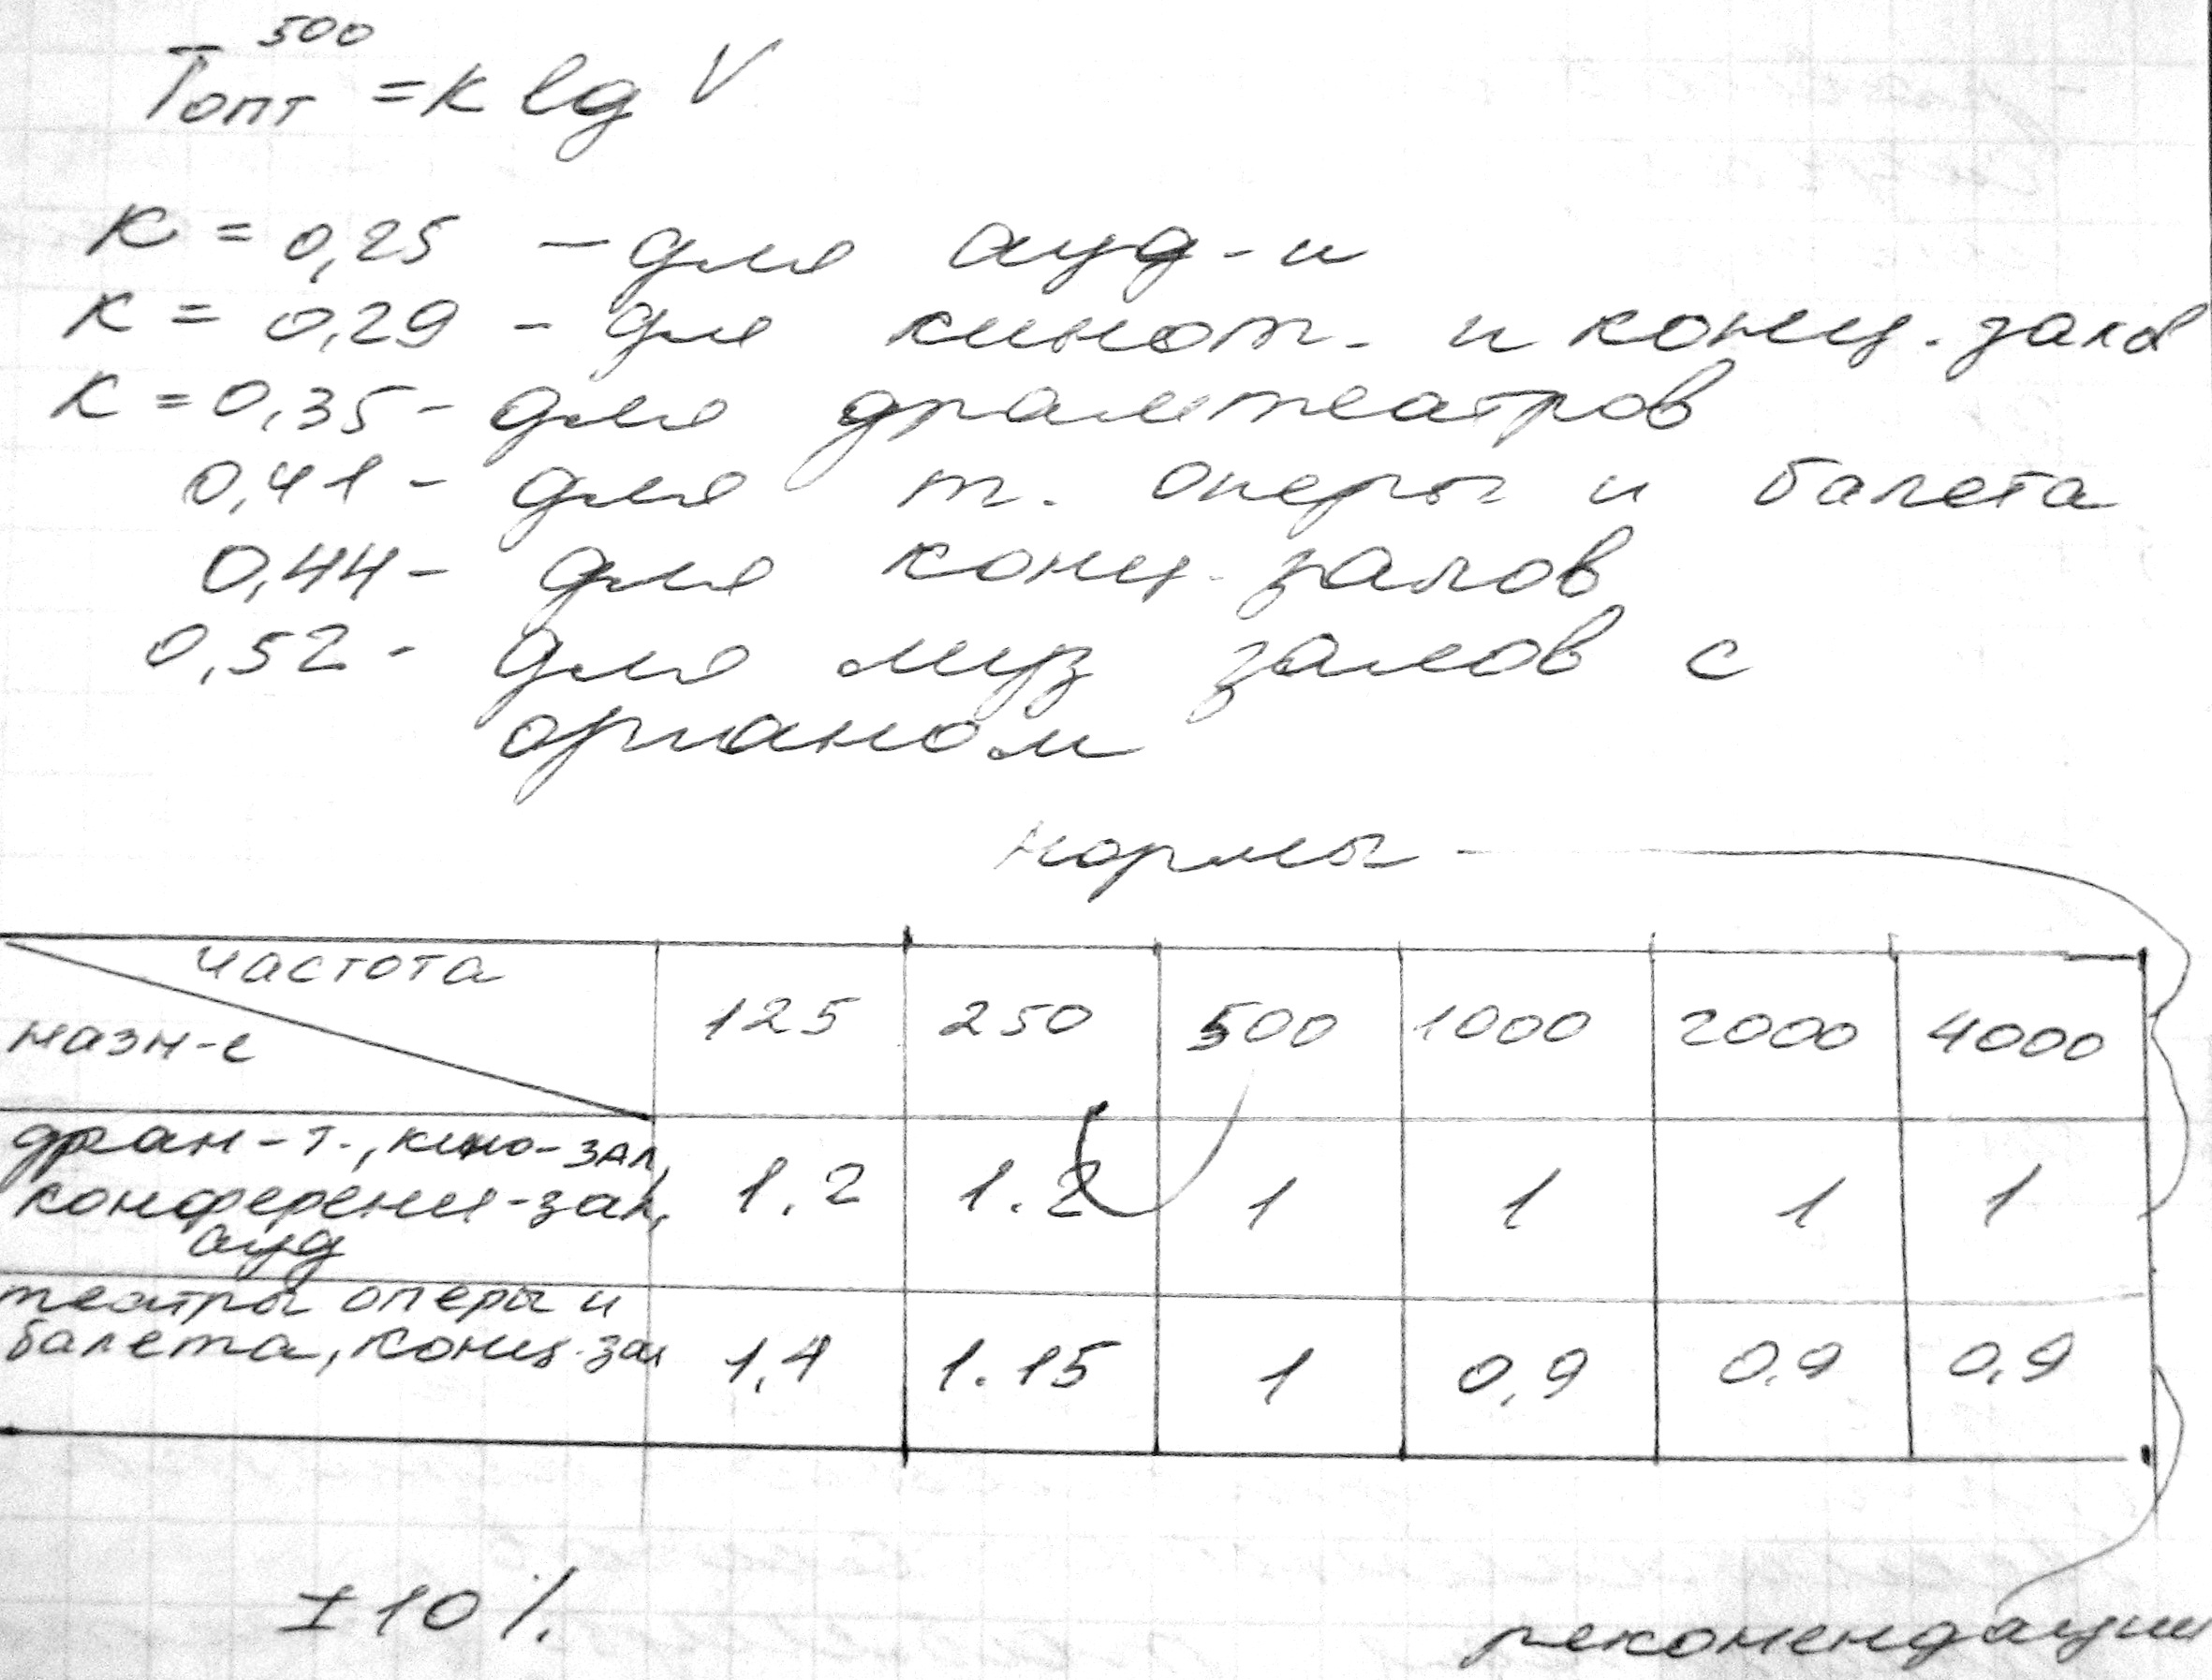 T опт 500 = к lg V
К = 0,25 – для ауд-и
К = 0,29 – для кинот. и конц. зала
К = 0,35 - для драмтеатров
0,41 - для т. оперы и балета
0,44 - для конц. залов
0,52 - для муз залов с
органом
нормы
частота 125 250 500 1000 2000 4000
назн-е
дран-т., кино-зал, 1.2 1.2 1 1 1 1
конференц-зал,
ауд
театры оперы и
балета, конц. зал 1,4 1.15 1 0,9 0,9 0,9
±10%
рекомендации